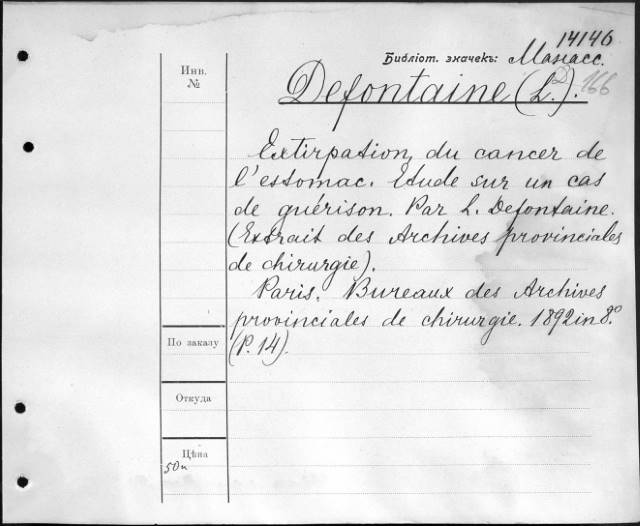 14146
Библіот. значекъ: Манасс.
Инв.
№
Defontaine (L.).
166
Extirpation du cancer de
l'estomac. Etude sur un cas
de guérison. Par L. Defontaine.
(Extrait des Archives provinciales
de chirurgie).
Paris. Bureaux des Archives
provinciales de chirurgie. 1892 in 8.º
(P. 14).
По заказу
Откуда
Цѣна
50к